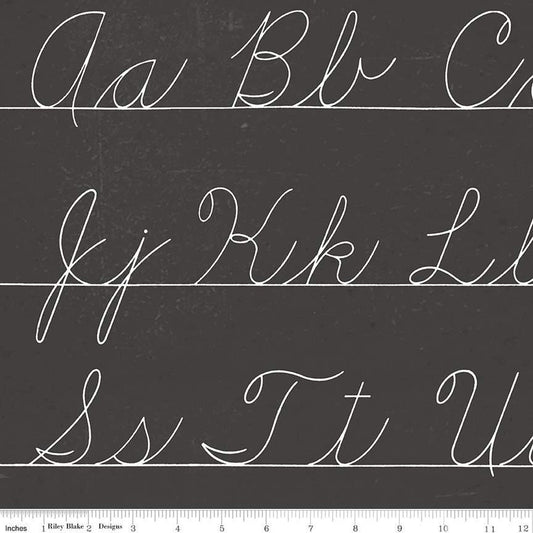 Aa Bb C
Jj Kk Ll
Ss Tt U
Inches 1 Riley Blake 2 Designs 3 4 5 6 7 8 9 10 11 12